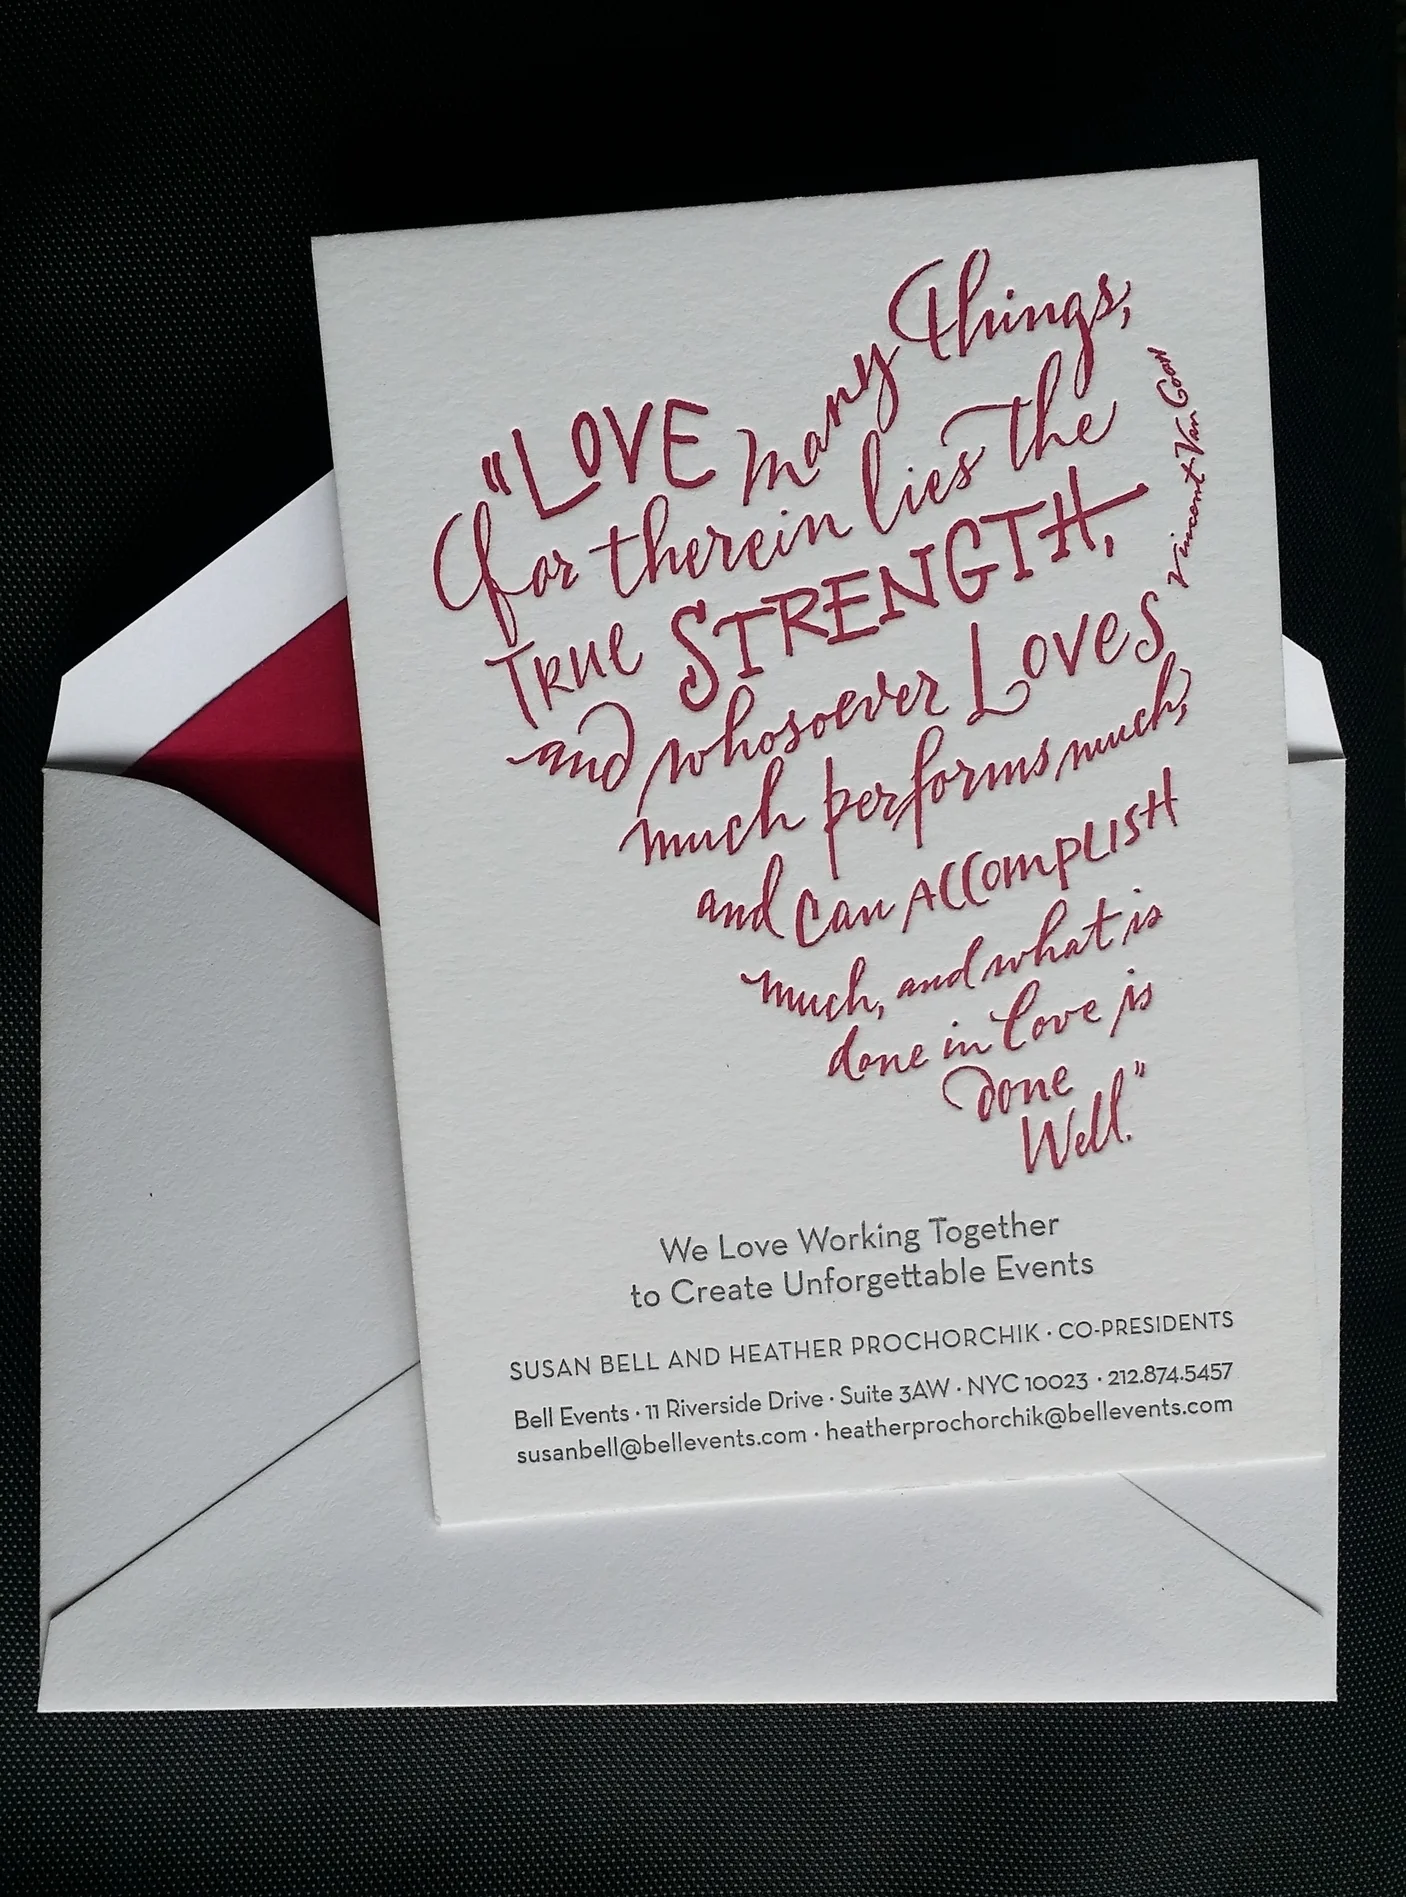 "LOVE many Things,
for therein lies the
True STRENGTH,
and whosoever Loves
much performs much,
and can ACCOMPLISH
much, and what is
done in love is
Done
Well."
Vincent Van Gogh
We Love Working Together
to Create Unforgettable Events
SUSAN BELL AND HEATHER PROCHORCHIK · CO-PRESIDENTS
Bell Events · 11 Riverside Drive · Suite 3AW · NYC 10023 · 212.874.5457
susanbell@bellevents.com · heatherprochorchik@bellevents.com